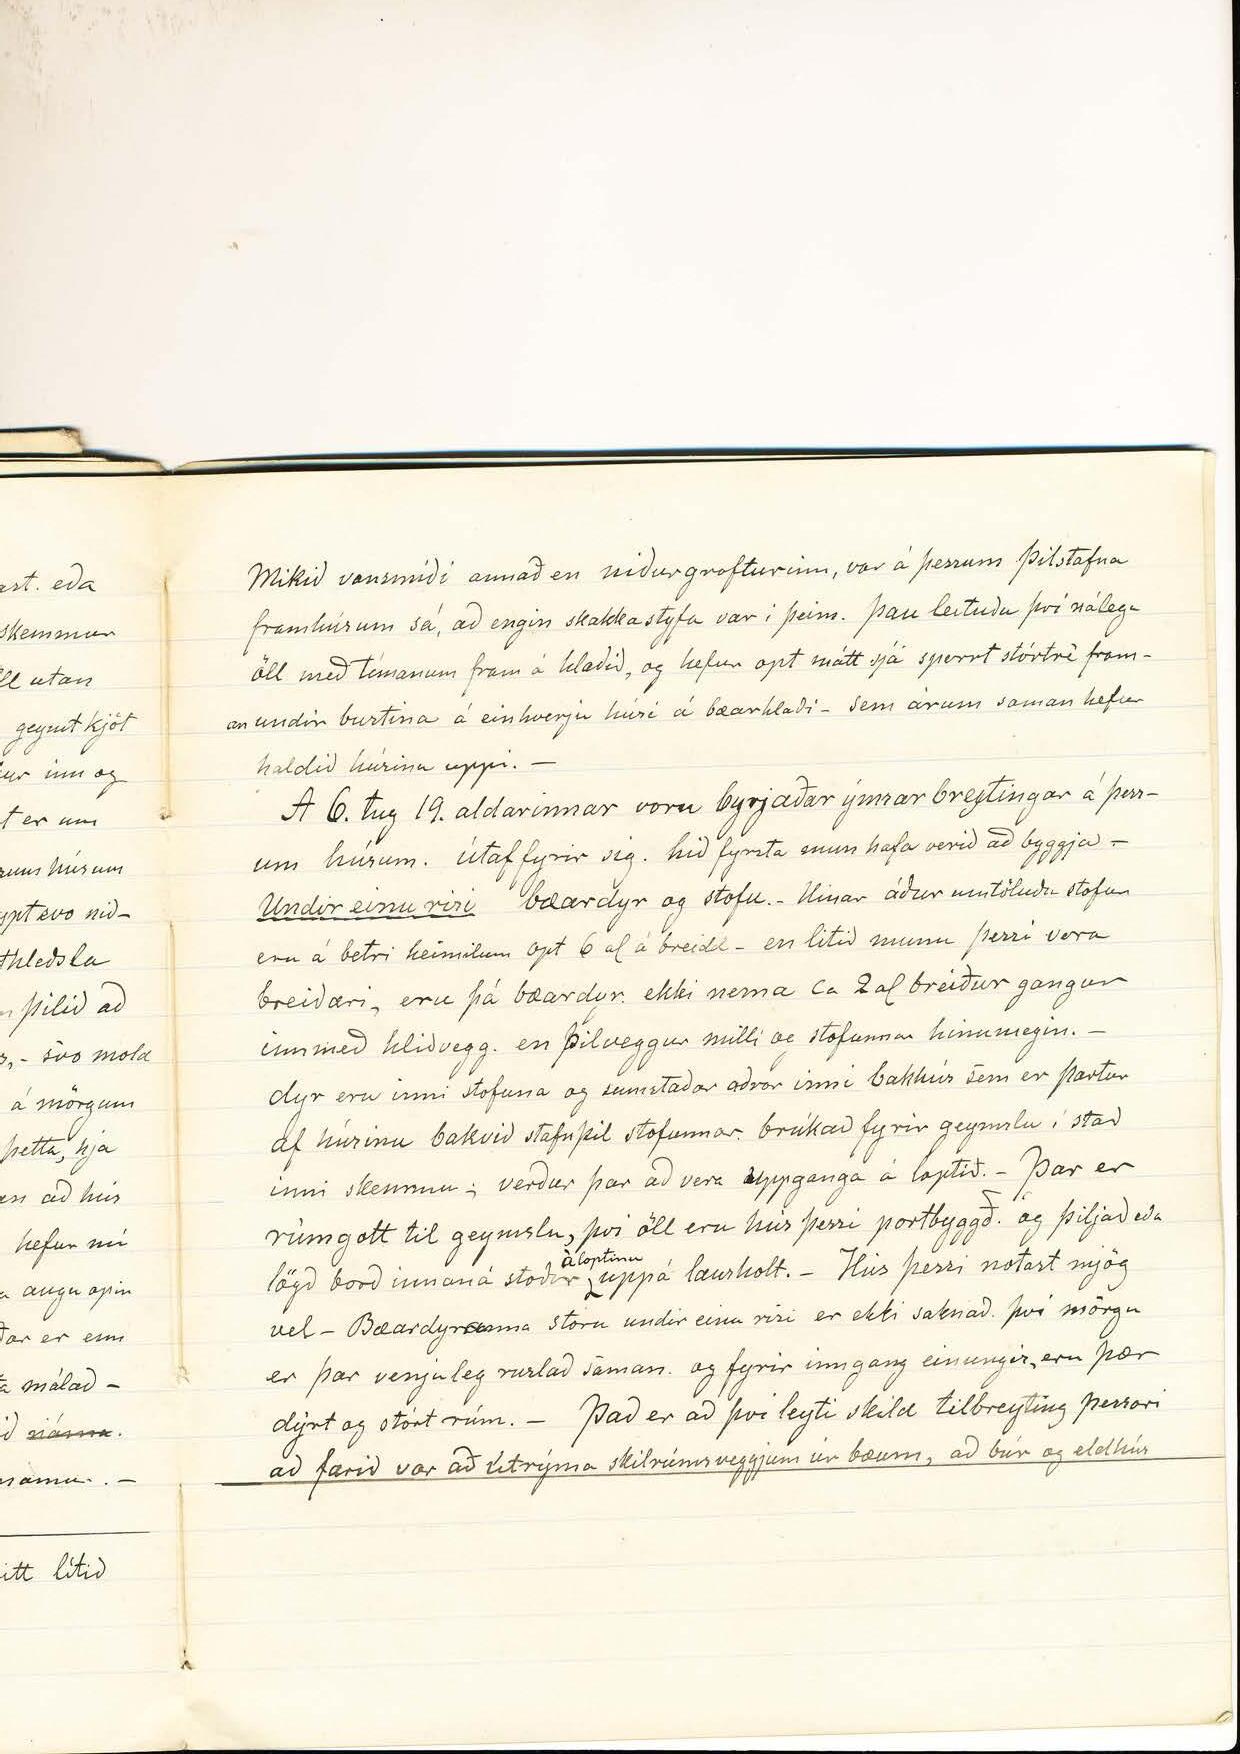 ast. eða
skemmur
ll utan
geymt kjöt
ur inn og
t er um
sum húsum
ypt svo nið-
thleðsla
þilið að
- svo mold
á mörgum
þetta, hja
en að hús
hefur nú
a augu opin
ðar er enn
ta málað -
ið nánna.
samu. -
itt lítið
Mikið vansmíði annað en niðurgrofturinn, var á þessum þilstafna
framhúsum sá, að engin skakkastyfa var í þeim. Þau leituðu því nálega
öll með tímanum fram á hlaðið, og hefur opt mátt sjá sperrt stórtrè fram-
an undir burtina á einhverju húsi á bæarhlaði - sem árum saman hefur
haldið húsinu uppi. -
A 6. tug 19. aldarinnar voru byrjaðar ýmsar breytingar á þess-
um húsum. útaffyrir sig. hið fyrsta mun hafa verið að byggja -
Undir einu risi bæardyr og stofu. - Hinar áður umtöluðu stofur
eru á betri heimilum opt 6 al á breidd - en lítið munu þessi vera
breiðari, eru þá bæardyr. ekki nema ca 2 al breiður gangur
innmeð hliðvegg. en þilveggur milli og stofunnar hinumegin. -
dyr eru inni stofuna og sumstaðar aðrar inní bakhús sem er partur
af húsinu bakvið stafnþil stofunnar. brúkað fyrir geymslu í stað
inni skemmu; verður þar að vera uppganga á loptið. - Þar er
rúmgott til geymslu, því öll eru hús þessi portbyggð. og þiljað eða
lögð borð innaná stoðir á loptinu uppá lausholt. - Hús þessi notast mjög
vel - Bæardyranna stóru undir einu risi er ekki saknað. því mörgu
er þar venjuleg ruslað saman. og fyrir inngang einungis, eru þær
dýrt og stórt rúm. - Það er að því leyti skild tilbreyting þessari
að farið var að útrýma skilrúmsveggjum úr bæum, að búr og eldhús